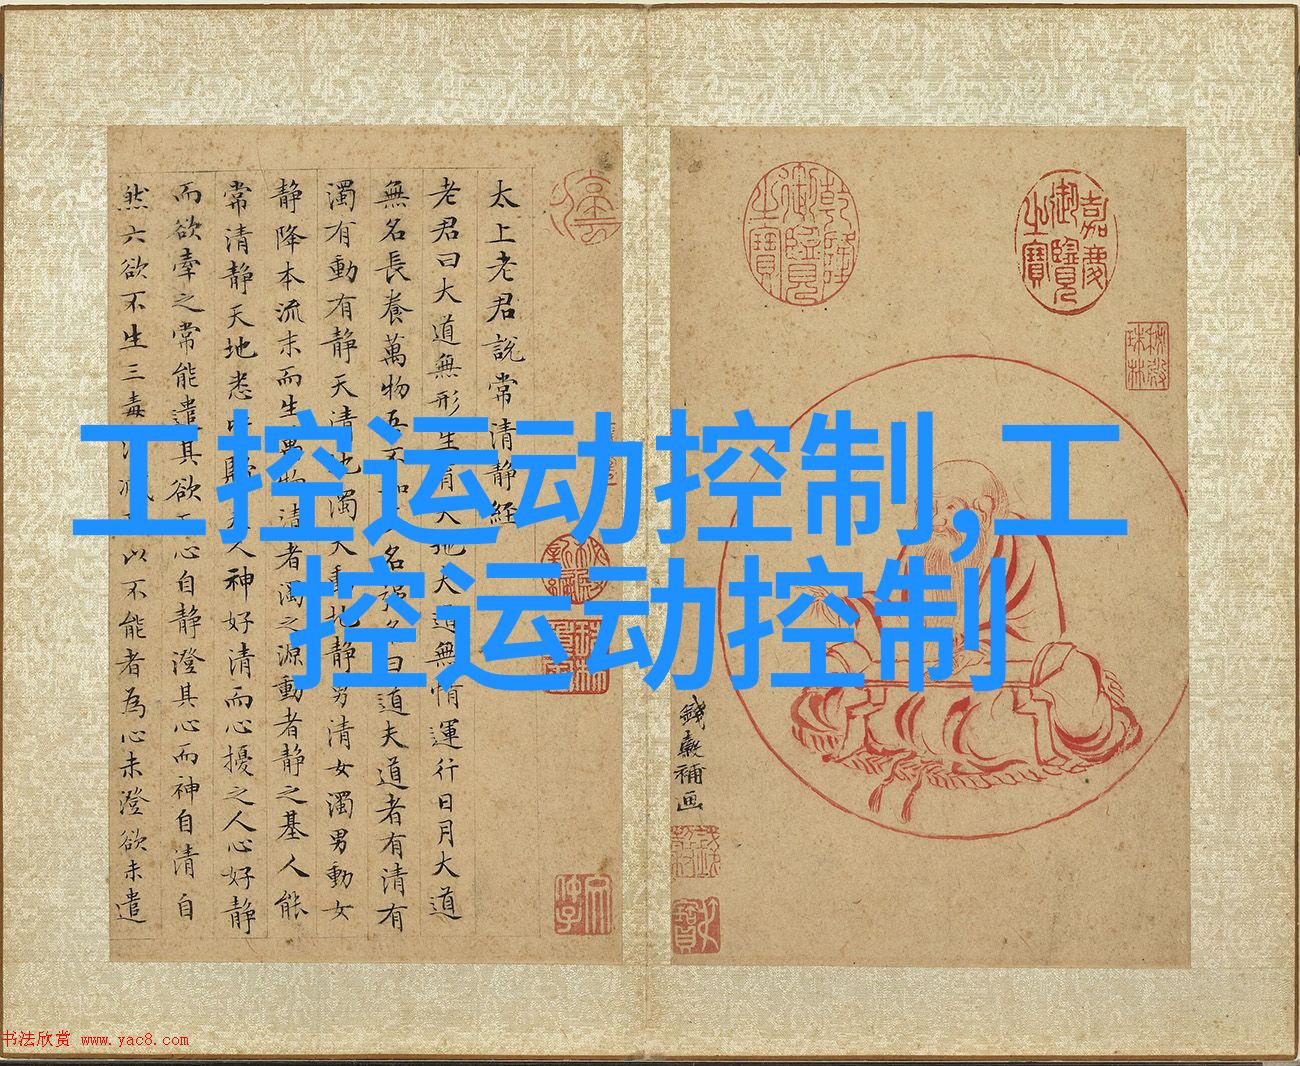 工控运动控制,工
控运动控制
嘉慶御覽之寶
乾隆御覽之寶
錢穀補画
太上老君說常清静經
老君曰大道無形生育天地大道無情運行日月大道
無名長養萬物吾不知名强名曰道夫道者有清有
濁有動有静天清地濁天動地静男清女濁男動女
静降本流末而生萬物清者濁之源動者静之基人能
常清静天地悉皆歸夫人神好清而心擾之人心好静
而欲牽之常能遣其欲而心自静澄其心而神自清自
然六欲不生三毒消滅以不能者為心未澄欲未遣
书法欣赏 www.yac8.com